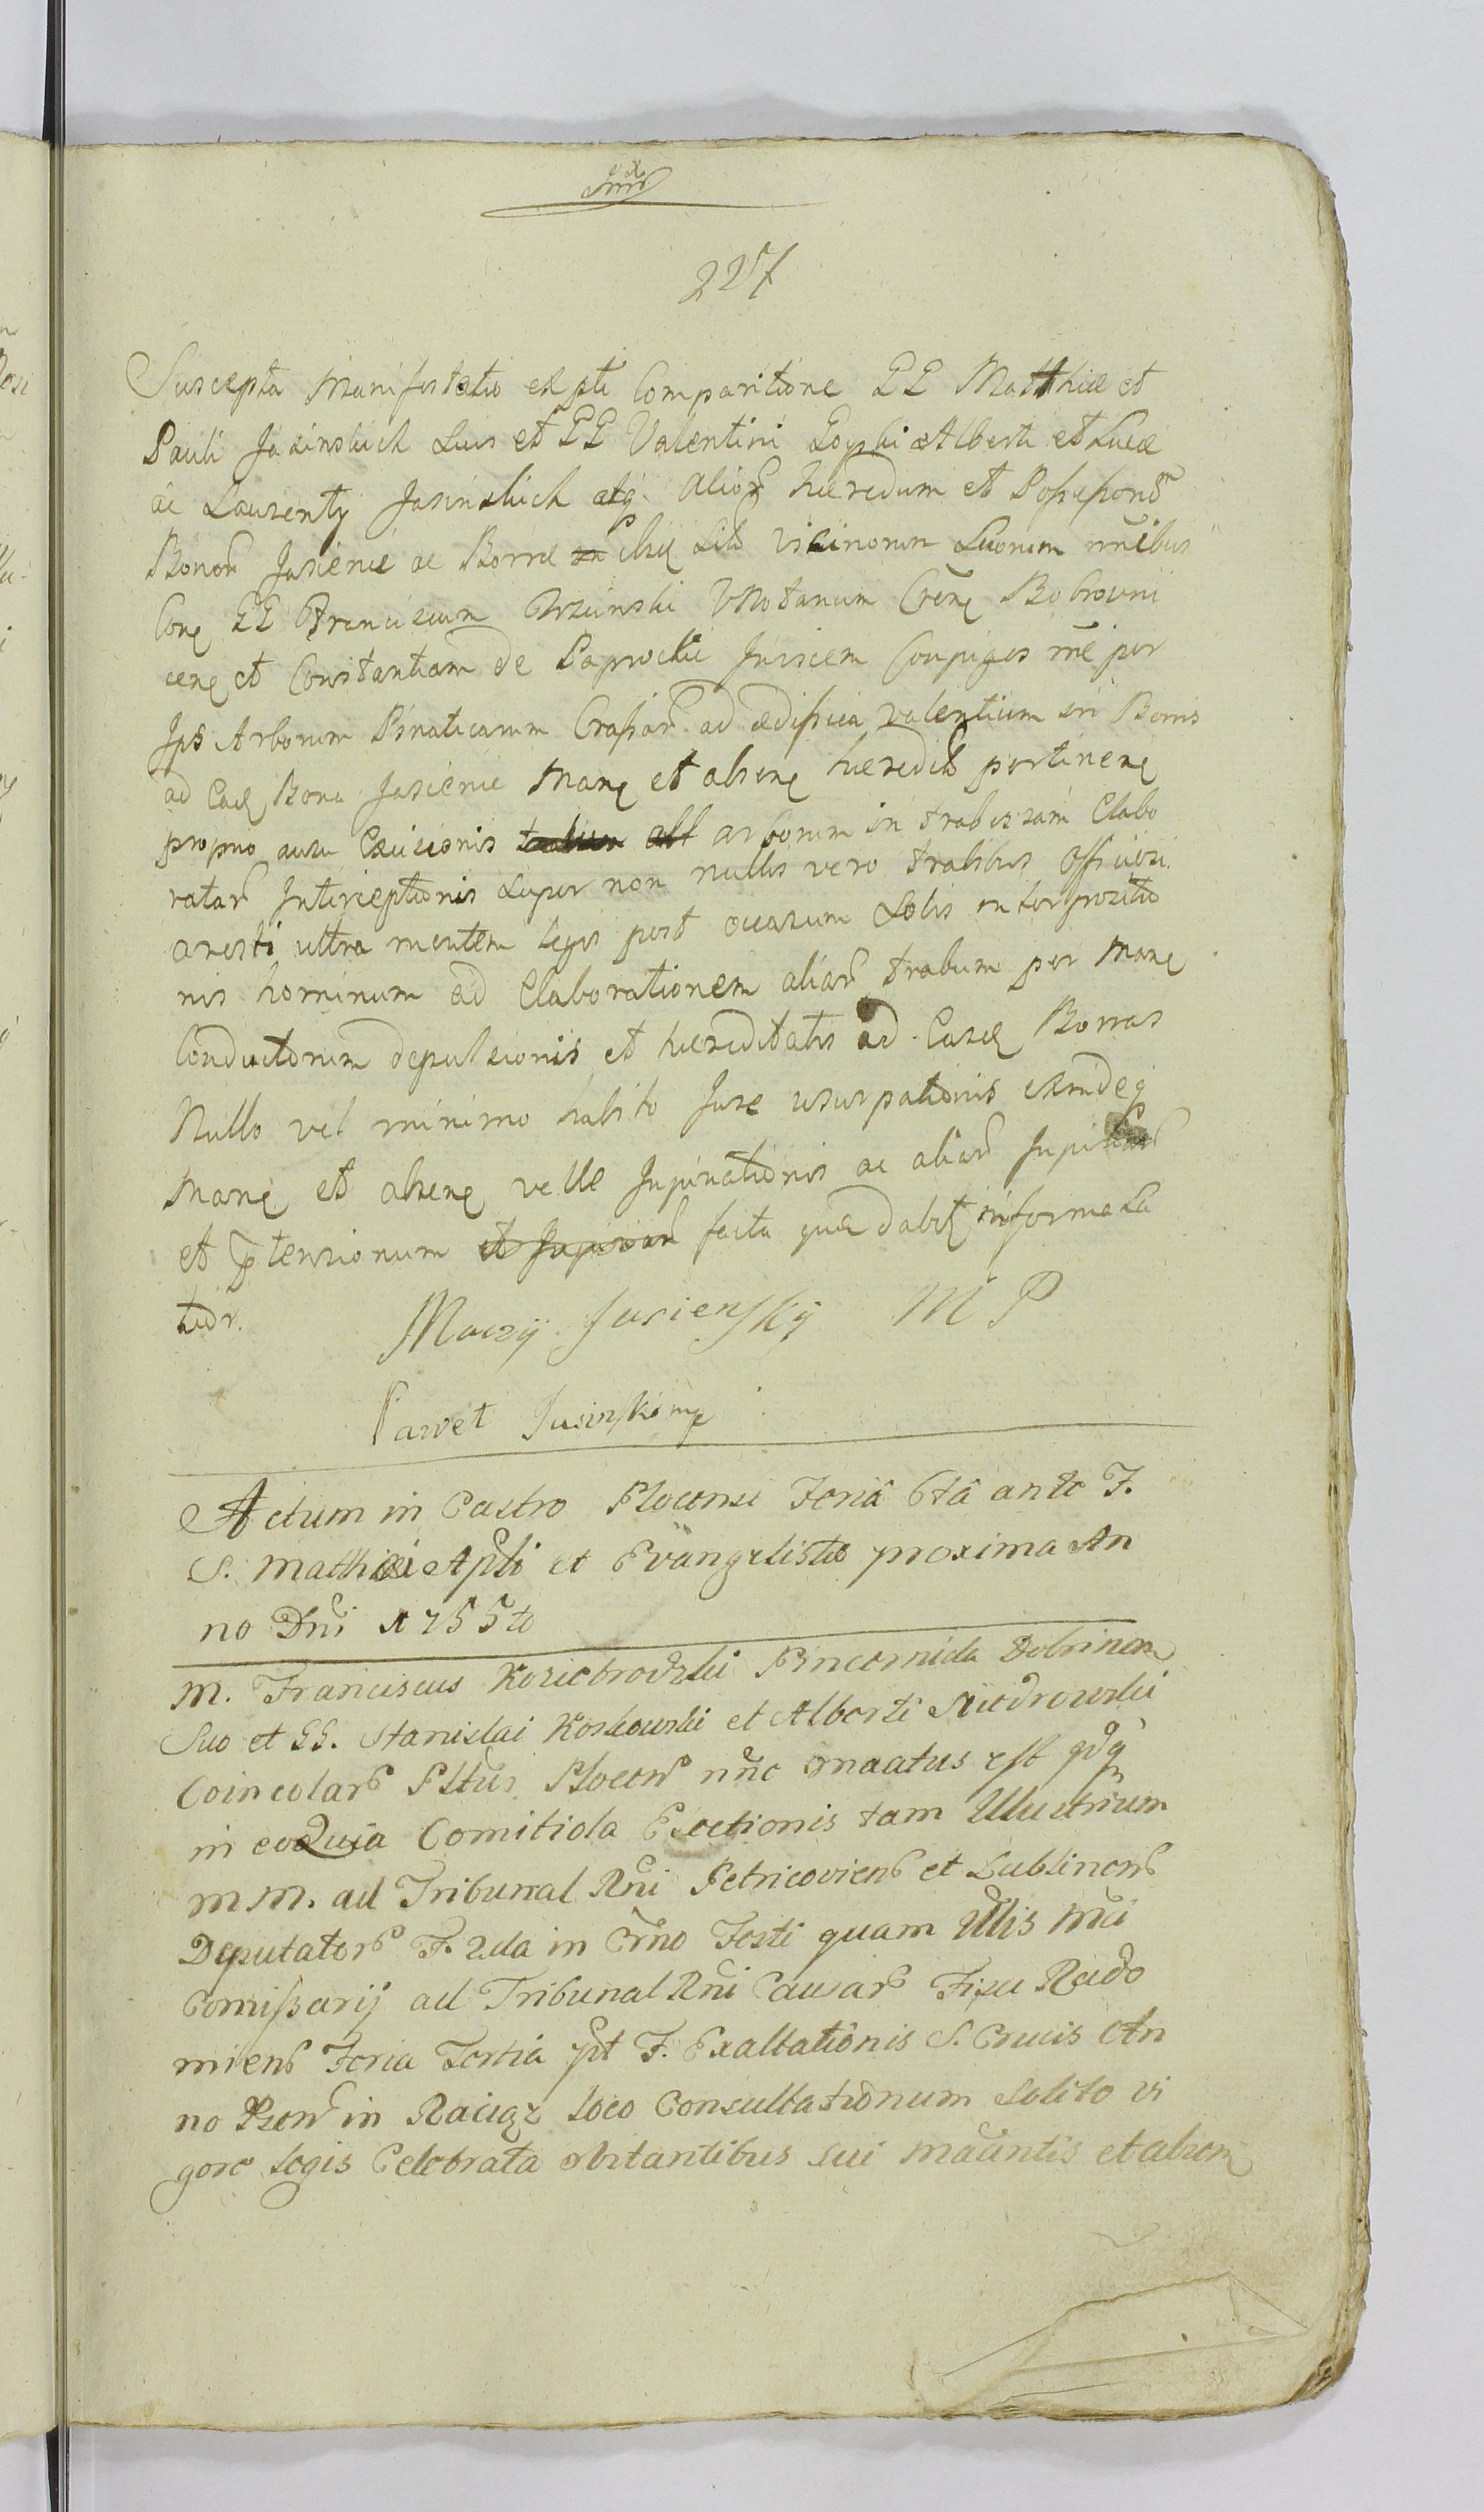 227
Suscepta Manifestatio ex pti Comparitione GG Matthiæ et
Pauli Jasinskich Suis et GG Valentini Alberti et Lucæ
ac Laurentij Jasinskich atq. alior. hæredum et Possessor.
Bonor. Jasienie ac Borre sibi vicinorum Suorum nnĩbus
Cone GG Franciscum Notarium Crene Bobrowni
cene et Constantiam de Paprockie Conjuges rñe per
Ips Arborum Pinaticarum Crassar. ad ædificia valentium in Bonis
ad Eade Bona Jasienie Mane et absene hæredit. pertinene
proprio ausu Excisionis arborum in trabes jam Elabo
ratar. Interceptionis super non nullis vero trabibus Officiosi
aresti ultra mentem legis post occasum Solis interpositio
nis hominum ad Elaborationem aliar. trabum per Mane
Conductorum depulsionis et hæreditatis ad Borras
Nullo vel minimo habito Jure usurpationis
Mane et absene velle ac aliar.
et ptensionum facta quæ dabit informata
tidr.
Maczij Jasiensky M P
Paweł Jasinski mp
Actum in Castro Plocensi Feria 6ta ante F.
S. Mathæi Apli et Evangelistæ proxima An
no Dni 1755to
M. Franciscus Koziebrodzki Pincernida Dobrinen
Suo et GG. Stanislai Koskowski et Alberti
Coincolar. Pltus Plocen. nnc maatus est
in eo Quia Comitiola Electionis tam Illustrium
M M. ad Tribunal Rni Petricoviens. et Lublinens.
Deputator. F. 2da in Crno Festi quam Illis Mci
Comissarij ad Tribunal Rni Causar. Fisci Rado
miens. Feria Tertia pt F. Exaltationis S. Crucis An
no Psen. in Raciąz loco Consultationum Solito vi
gore legis Celebrata obstantibus sui maantis et absen